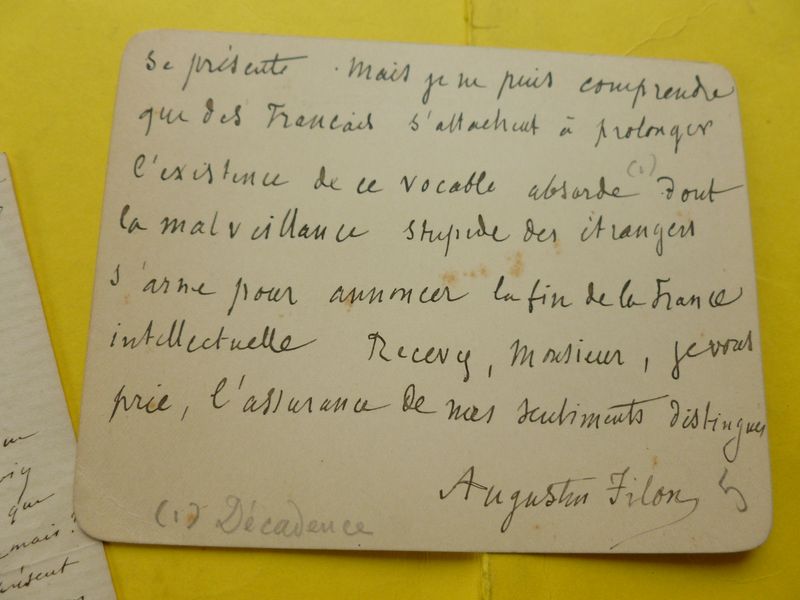 se présente. Mais je ne puis comprendre
que des Francais s'attachent à prolonger
l'existence de ce vocable absurde (1) dont
la malveillance stupide des étrangers
s'arme pour annoncer la fin de la France
intellectuelle Recevez, Monsieur, je vous
prie, l'assurance de mes sentiments distingués
Augustin Filon
(1) Décadence
que
mais?
présent